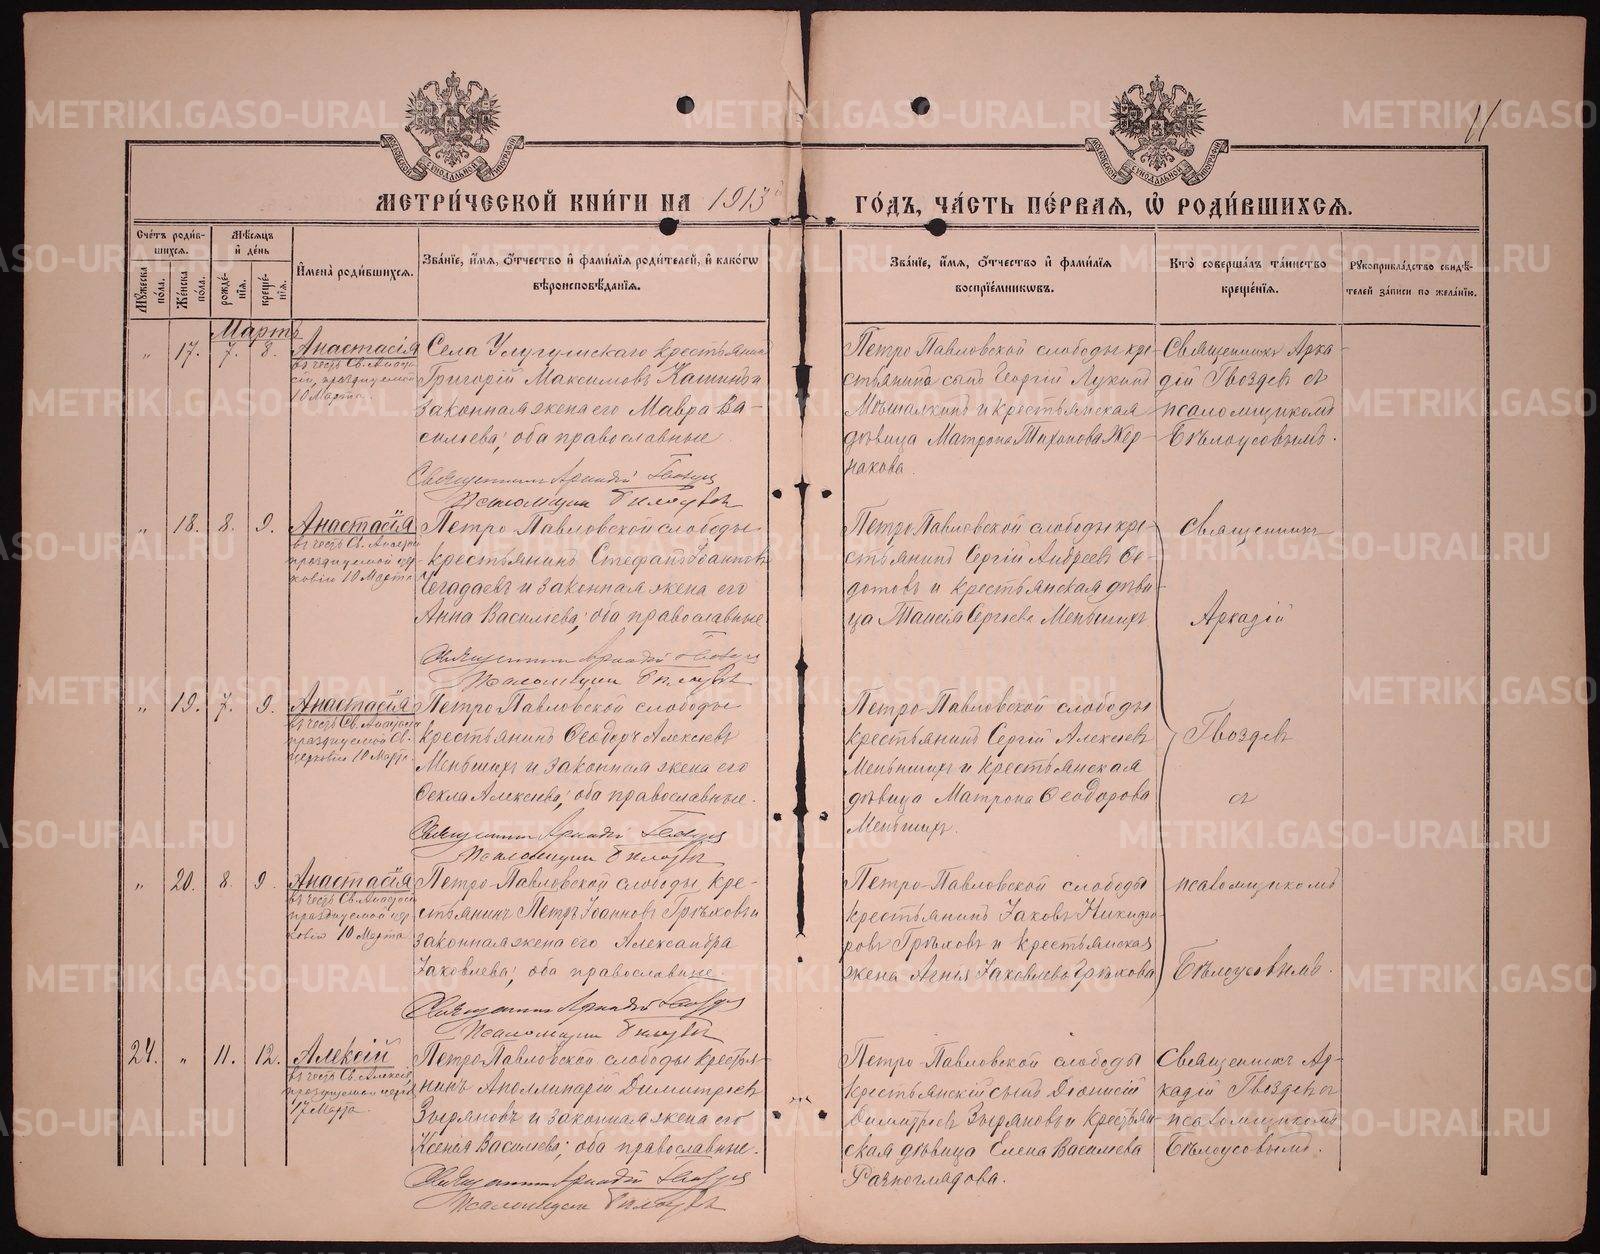 11
МЕТРИ́ЧЕСКОЙ КНИ́ГИ НА 1913й ГО́ДЪ, ЧА́СТЬ ПЕ́РВАЯ, Ѡ҆ РОДИ́ВШИХСЯ.
Сче́тъ роди́в-
шихся.
Мꙋ́жеска по́ла.
Же́нска по́ла.
Мѣ́сяцъ
и҆ де́нь
рожде́-
нїя.
креще́-
нїя.
И҆мена̀ роди́вшихся.
Зва́нїе, и҆́мя, ѻ҆́тчество и҆ фами́лїя роди́телей, и҆ како́гѡ
вѣроисповѣ́данїя.
Зва́нїе, и҆́мя, ѻ҆́тчество и҆ фами́лїя
воспрїе́мникѡвъ.
Кто̀ соверша́лъ та́инство
креще́нїя.
Рꙋкоприкла́дство свидѣ́-
телей за́писи по жела́нїю.
Мартъ
" 17. 7. 8.
Анастасія
въ честь Св. Анаста-
сіи, празднуемой
10 Марта.
Села крестьянинъ
Григорій Максимовъ и
законная жена его Мавра Ва-
сильева; оба православные
Священникъ Аркадій Гвоздевъ
Псаломщикъ Бѣлоусовъ
Петро Павловской слободы кре-
стьянина сынъ Георгій Лукинъ
и крестьянская
дѣвица Матрона Тихонова Жер-
накова.
Священникъ Арка-
дій Гвоздевъ съ
псаломщикомъ
Бѣлоусовымъ.
" 18. 8. 9.
Анастасія
въ честь Св. Анастасіи
празднуемой цер-
ковію 10 Марта
Петро-Павловской слободы
крестьянинъ Стефанъ Іоанновъ
Чегадаевъ и законная жена его
Анна Васильева; оба православные
Священникъ Аркадій Гвоздевъ
Псаломщикъ Бѣлоусовъ
Петро Павловской слободы кре-
стьянинъ Сергій Андреевъ Ѳе-
дотовъ и крестьянская дѣви-
ца Таисія Сергіева Меньшихъ
Священникъ
Аркадій
" 19. 7. 9.
Анастасія
въ честь Св. Анастасіи
празднуемой Св.
церковію 10 Марта.
Петро Павловской слободы
крестьянинъ Ѳеодоръ Алексѣевъ
Меньшихъ и законная жена его
Ѳекла Алексѣева; оба православные.
Священникъ Аркадій Гвоздевъ
Псаломщикъ Бѣлоусовъ
Петро-Павловской слободы
крестьянинъ Сергій Алексѣевъ
Меньшихъ и крестьянская
дѣвица Матрона Ѳеодорова
Меньшихъ.
Гвоздевъ
съ
" 20. 8. 9.
Анастасія
въ честь Св. Анастасіи
празднуемой цер-
ковію 10 Марта
Петро-Павловской слободы кре-
стьянинъ Петръ Іоанновъ Грѣховъ и
законная жена его Александра
Іаковлева; оба православные.
Священникъ Аркадій Гвоздевъ
Псаломщикъ Бѣлоусовъ
Петро-Павловской слободы
крестьянинъ Іаковъ Никифо-
ровъ Грѣховъ и крестьянская
жена Агнія Іаковлева Грѣхова
псаломщикомъ
Бѣлоусовымъ.
24. " 11. 12.
Алексій
въ честь Св. Алексія,
17 Марта
Петро Павловской слободы крестья-
нинъ Аполлинарій Димитріевъ
Зыряновъ и законная жена его
Ксенія Васильева; оба православные.
Священникъ Аркадій Гвоздевъ
Псаломщикъ Бѣлоусовъ
Петро-Павловской слободы
крестьянскій сынъ Діонисій
Димитріевъ Зыряновъ и крестьян-
ская дѣвица Елена Васильева
Разноглядова.
Священникъ Ар-
кадій Гвоздевъ съ
псаломщикомъ
Бѣлоусовымъ.
METRIKI.GASO-URAL.RU